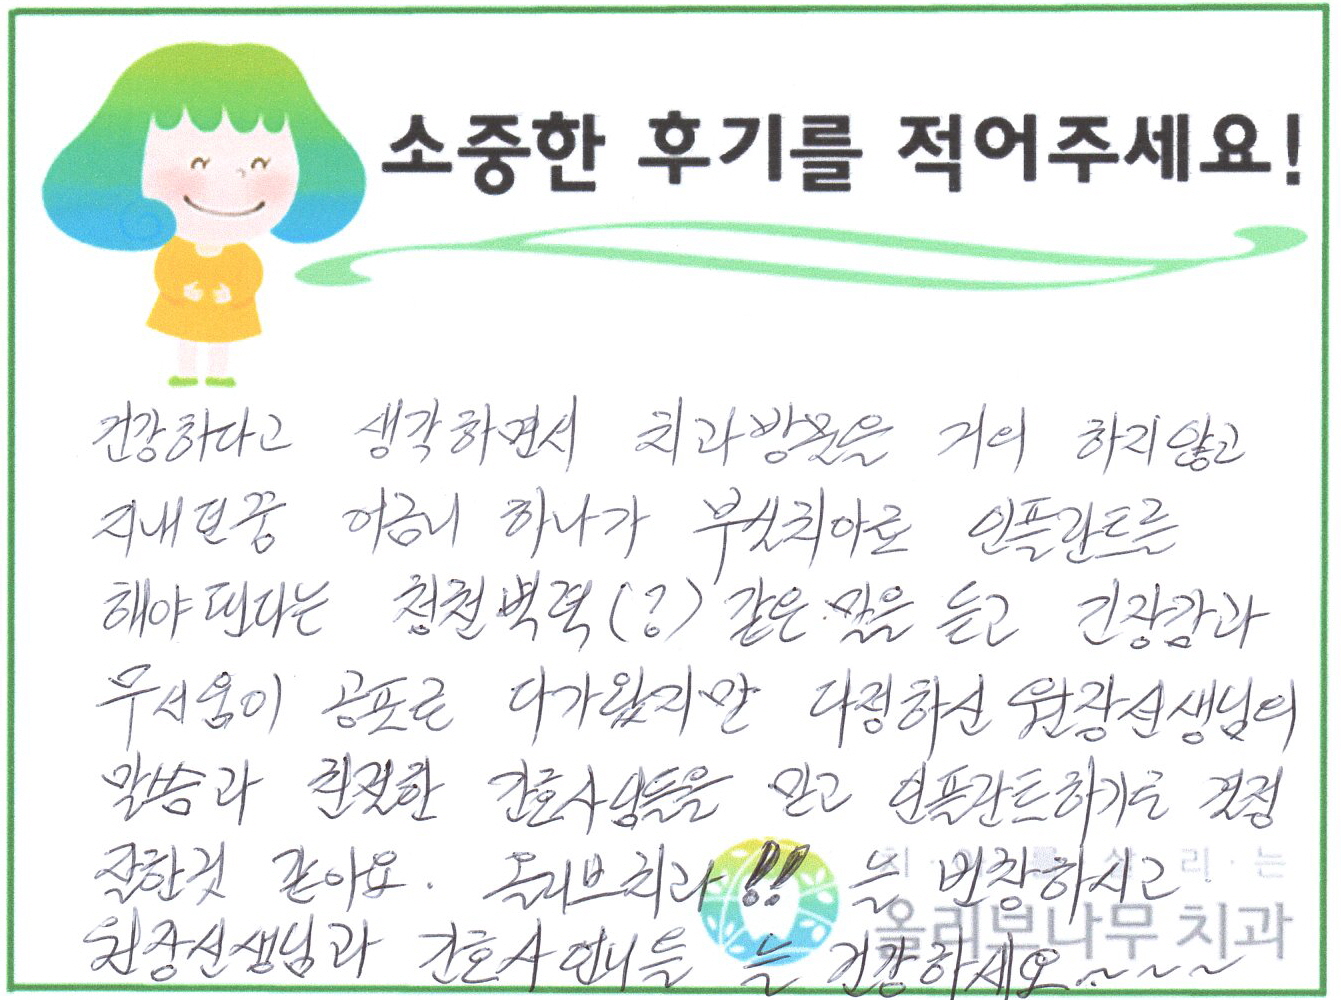 소중한 후기를 적어주세요!
건강하다고 생각하면서 치과방문을 거의 하지않고
지내던중 어금니 하나가 부숫치아로 인플란트를
해야된다는 청천벽력(?) 같은 말을 듣고 긴장감과
무서움이 공포로 다가왔지만 다정하신 원장선생님의
말씀과 친절한 간호사님들을 믿고 인플란트하기로 결정
잘한것 같아요. 올리브치과!! 늘 번창하시고
치·아·를·살·리·는
올리브나무 치과
원장선생님과 간호사언니들 늘 건강하세요~~~~